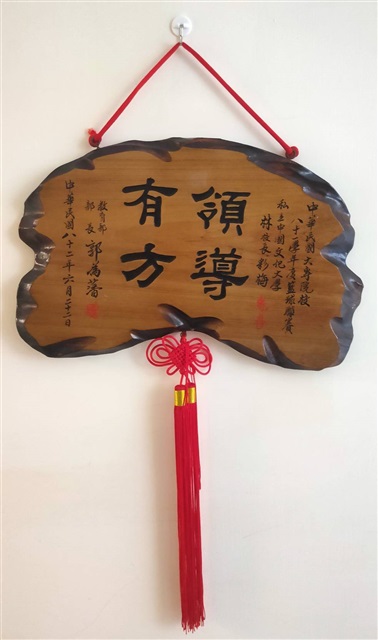 中華民國大專院校
八十一學年度籃球聯賽
私立中國文化大學
林校長彩梅
領導
有方
教育部
部長 郭為藩
中華民國八十二年六月二十二日